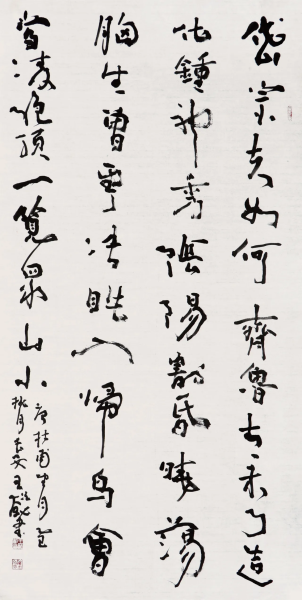 岱宗夫如何齊魯青未了造
化鍾神秀陰陽割昏曉蕩
胸生曾雲決眥入歸鳥會
當凌絕頂一覽眾山小
唐杜甫
秋月長安王